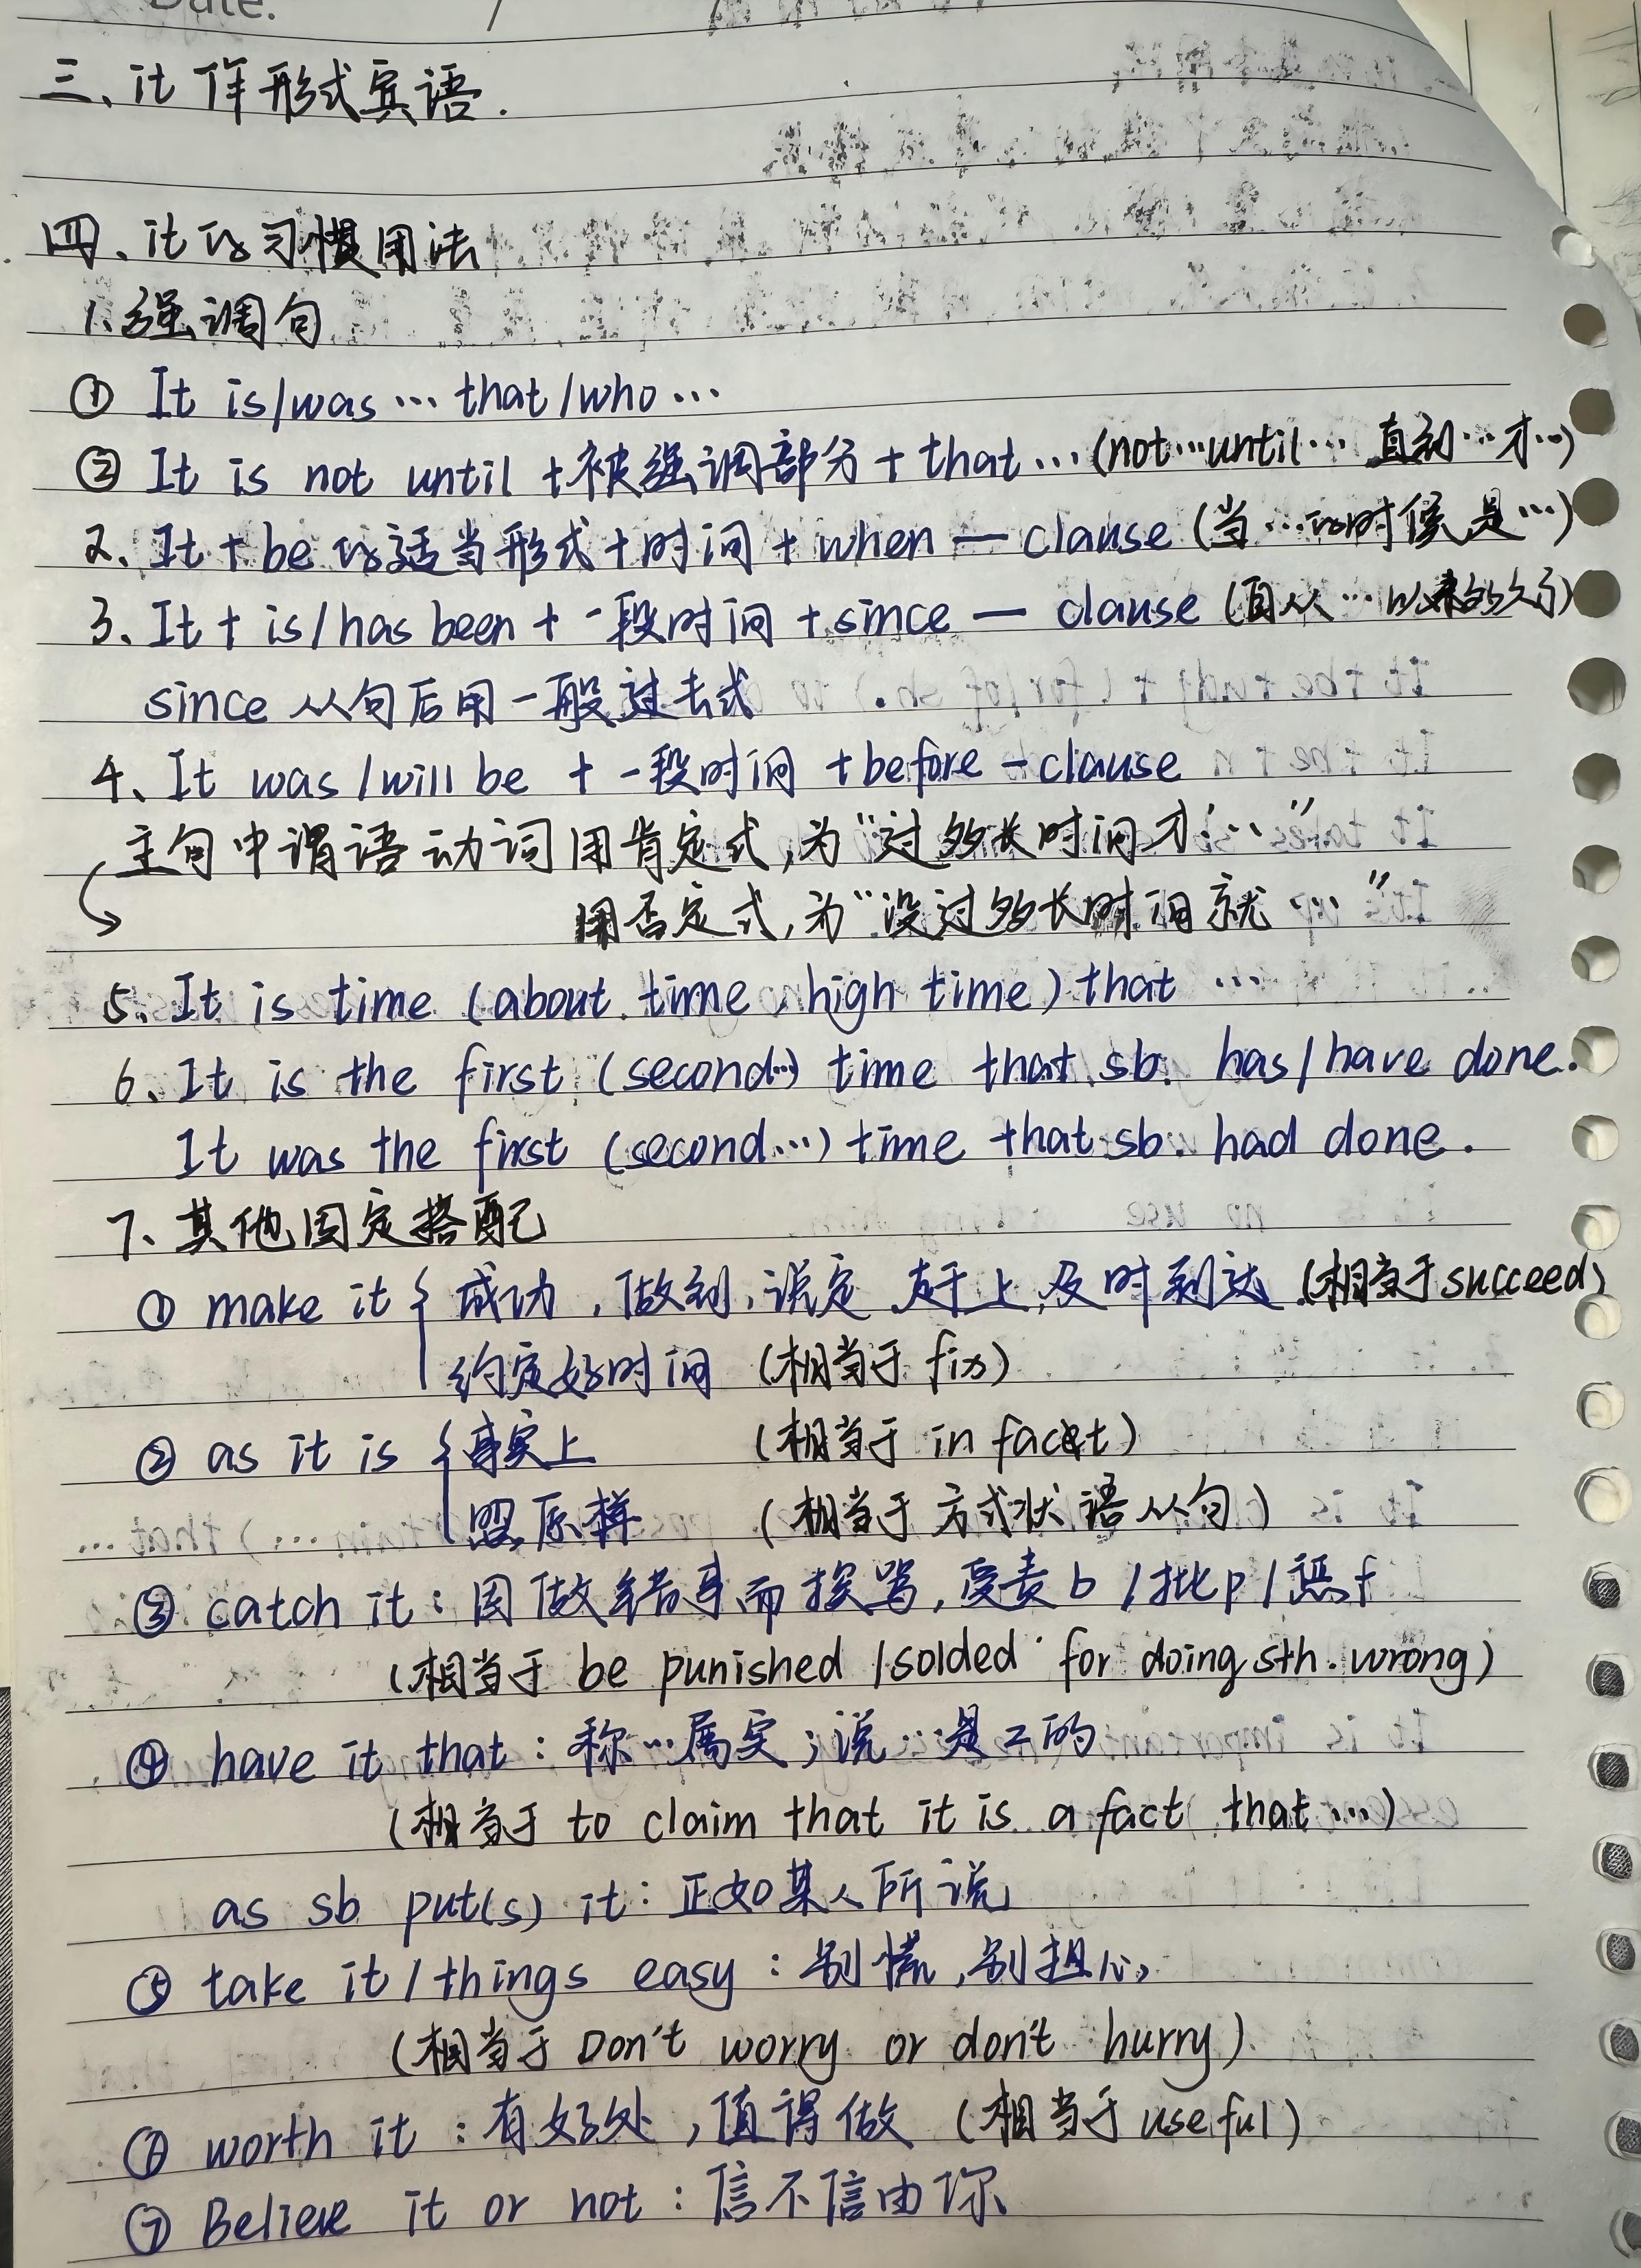 Date.
三、it 作形式宾语.
四、it 的习惯用法
1.强调句
① It is/was … that/who …
② It is not until +被强调部分+ that … (not…until… 直到…才…)
2、It + be 的适当形式+时间 + when — clause (当…的时候是…)
3、It + is/has been + 一段时间 + since — clause (自从…以来多久了)
since 从句后用一般过去式
4、It was/will be + 一段时间 +before - clause
主句中谓语动词用肯定式,为“过多长时间才…”
用否定式,为“没过多长时间就…”
5、It is time (about time、high time) that …
6、It is the first (second…) time that sb. has/have done.
It was the first (second…) time that sb. had done.
7、其他固定搭配
① make it { 成功,做到,说定,赶上,及时到达 (相当于succeed)
约定好时间 (相当于 fix)
② as it is { 事实上 (相当于 in fact)
照原样 (相当于 方式状语从句)
③ catch it: 因做错事而挨骂,受责b/批p/惩f
(相当于 be punished /solded for doing sth. wrong)
④ have it that: 称…属实;说…是…的
(相当于 to claim that it is a fact that …)
as sb put(s) it: 正如某人所说
⑤ take it/things easy: 别慌,别担心
(相当于 Don't worry or don't hurry)
⑥ worth it: 有好处,值得做 (相当于 useful)
⑦ Believe it or not: 信不信由你